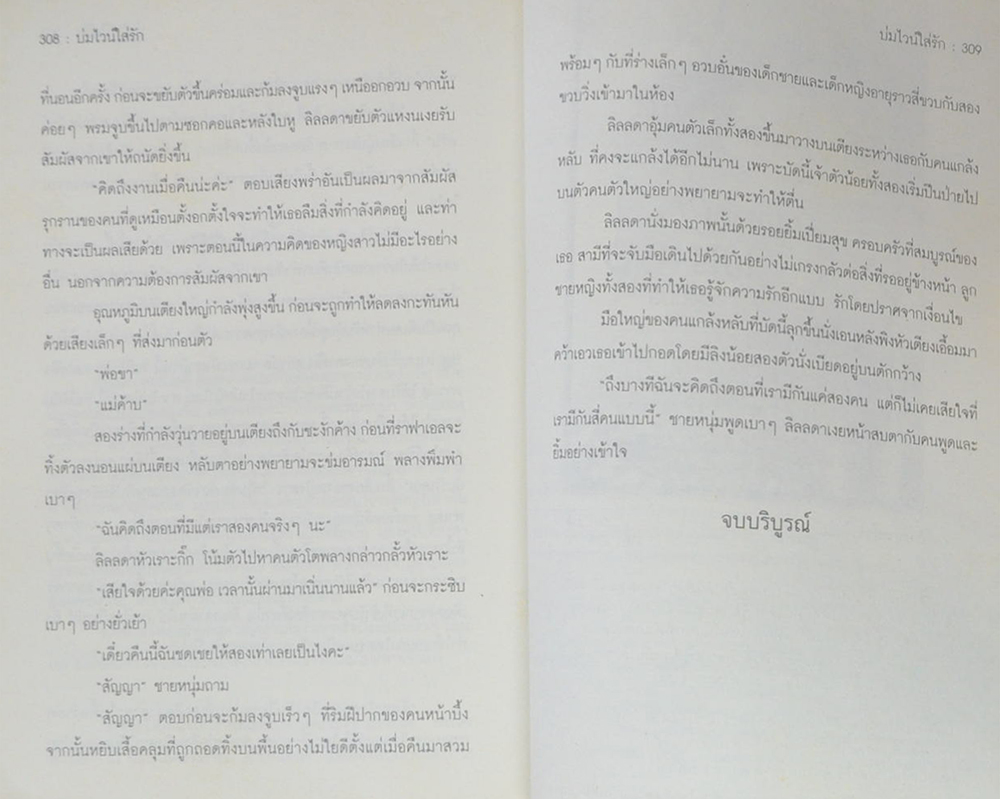 308 : บ่มไวน์ใส่รัก
ที่นอนอีกครั้ง ก่อนจะขยับตัวขึ้นคร่อมและก้มลงจูบแรงๆ เหนือออกอวบ จากนั้น
ค่อยๆ พรมจูบขึ้นไปตามซอกคอและหลังใบหู ลิลลดาขยับตัวแหงนเงยรับ
สัมผัสจากเขาให้ถนัดยิ่งขึ้น
"คิดถึงงานเมื่อคืนน่ะค่ะ" ตอบเสียงพร่าอันเป็นผลมาจากสัมผัส
รุกรานของคนที่ดูเหมือนตั้งอกตั้งใจจะทำให้เธอลืมสิ่งที่กำลังคิดอยู่ และท่า
ทางจะเป็นผลเสียด้วย เพราะตอนนี้ในความคิดของหญิงสาวไม่มีอะไรอย่าง
อื่น นอกจากความต้องการสัมผัสจากเขา
อุณหภูมิบนเตียงใหญ่กำลังพุ่งสูงขึ้น ก่อนจะถูกทำให้ลดลงกะทันหัน
ด้วยเสียงเล็กๆ ที่ส่งมาก่อนตัว
"พ่อขา"
"แม่ค้าบ"
สองร่างที่กำลังวุ่นวายอยู่บนเตียงถึงกับชะงักค้าง ก่อนที่ราฟาเอลจะ
ทิ้งตัวลงนอนแผ่บนเตียง หลับตาอย่างพยายามจะข่มอารมณ์ พลางพึมพำ
เบาๆ
"ฉันคิดถึงตอนที่มีแต่เราสองคนจริงๆ นะ"
ลิลลดาหัวเราะกิ๊ก โน้มตัวไปหาคนตัวโตพลางกล่าวกลั้วหัวเราะ
"เสียใจด้วยค่ะคุณพ่อ เวลานั้นผ่านมาเนิ่นนานแล้ว" ก่อนจะกระซิบ
เบาๆ อย่างยั่วเย้า
"เดี๋ยวคืนนี้ฉันชดเชยให้สองเท่าเลยเป็นไงคะ"
"สัญญา" ชายหนุ่มถาม
"สัญญา" ตอบก่อนจะก้มลงจูบเร็วๆ ที่ริมฝีปากของคนหน้าบึ้ง
จากนั้นหยิบเสื้อคลุมที่ถูกถอดทิ้งบนพื้นอย่างไม่ไยดีตั้งแต่เมื่อคืนมาสวม
บ่มไวน์ใส่รัก : 309
พร้อมๆ กับที่ร่างเล็กๆ อวบอั๋นของเด็กชายและเด็กหญิงอายุราวสี่ขวบกับสอง
ขวบวิ่งเข้ามาในห้อง
ลิลลดาอุ้มคนตัวเล็กทั้งสองขึ้นมาวางบนเตียงระหว่างเธอกับคนแกล้ง
หลับ ที่คงจะแกล้งได้อีกไม่นาน เพราะบัดนี้เจ้าตัวน้อยทั้งสองเริ่มปีนป่ายไป
บนตัวคนตัวใหญ่อย่างพยายามจะทำให้ตื่น
ลิลลดานั่งมองภาพนั้นด้วยรอยยิ้มเปี่ยมสุข ครอบครัวที่สมบูรณ์ของ
เธอ สามีที่จะจับมือเดินไปด้วยกันอย่างไม่เกรงกลัวต่อสิ่งที่รออยู่ข้างหน้า ลูก
ชายหญิงทั้งสองที่ทำให้เธอรู้จักความรักอีกแบบ รักโดยปราศจากเงื่อนไข
มือใหญ่ของคนแกล้งหลับที่บัดนี้ลุกขึ้นนั่งเอนหลังพิงหัวเตียงเอื้อมมา
คว้าเอวเธอเข้าไปกอดโดยมีลิงน้อยสองตัวนั่งเบียดอยู่บนตักกว้าง
"ถึงบางทีฉันจะคิดถึงตอนที่เรามีกันแค่สองคน แต่ก็ไม่เคยเสียใจที่
เรามีกันสี่คนแบบนี้" ชายหนุ่มพูดเบาๆ ลิลลดาเงยหน้าสบตากับคนพูดและ
ยิ้มอย่างเข้าใจ
จบบริบูรณ์